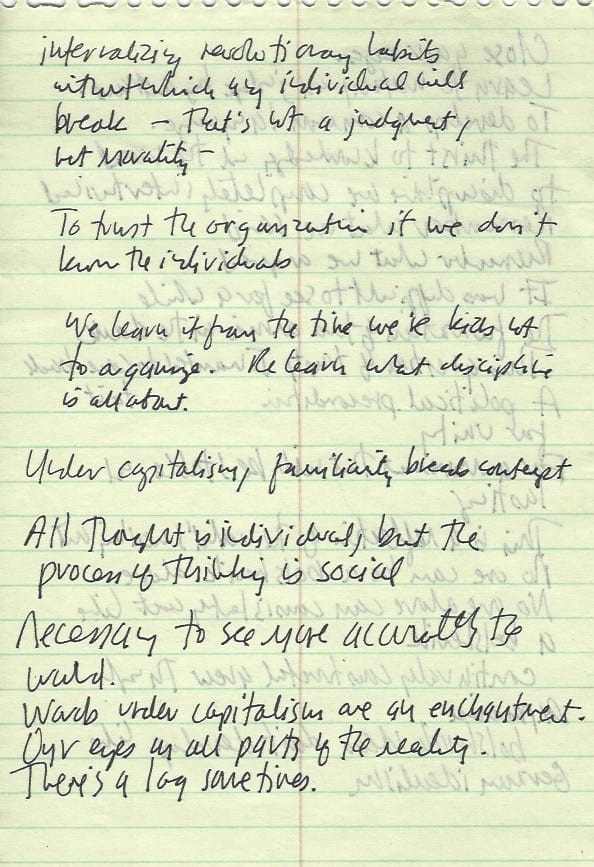 internalizing revolutionary habits
without which any individual will
break – That's not a judgment,
not morality –
To trust the organization if we don't
know the individuals
We learn it from the time we're kids not
to organize. Relearn what discipline
is all about.
Under capitalism, familiarity breeds contempt
All thought is individual, but the
process of thinking is social
Necessary to see more accurately the
world.
Words under capitalism are an enchantment.
Our eyes on all parts of the reality.
There's a lag sometimes.